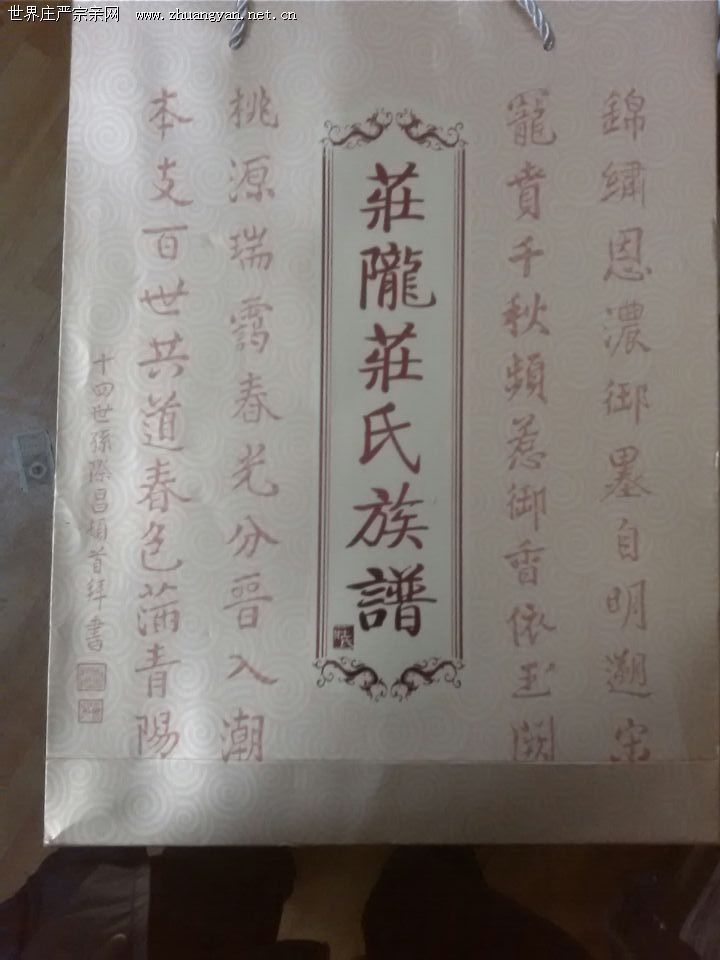 世界庄严宗亲网 www.zhuangyan.net.cn
錦繡恩濃御墨自明遡宋
寵賁千秋頻惹御香依玉闕
莊隴莊氏族譜
桃源瑞靄春光分晉入潮
本支百世共道春色滿青陽
十四世孫際昌頓首拜書